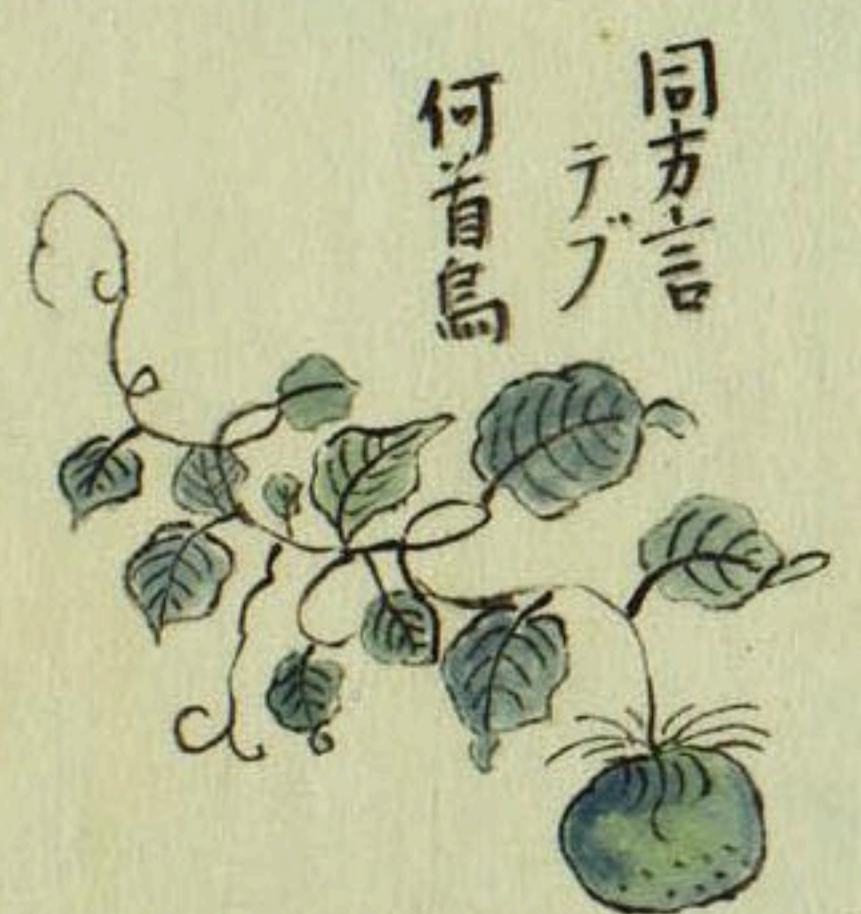 同方言
テブ
何首烏